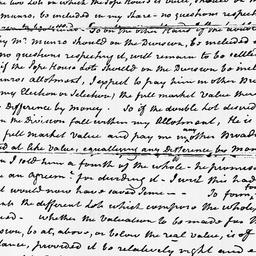 the two lots on which the Dope House is built, should on the
Munro, be included in my share - no questions respect
To on the other Hand if the
by Mr. Munro should on the Division, be included
no questions respecting it, will remain to be settled
if the Dope House lot should on the Division be incl
Munro's allotment, I expect to pay him in other
my Election or Selection, the full market Value there
Difference by money. So if the double lot desired
on the Division fall within my Allotment, He is
full market Value and pay me in any other
ed at like Value, equallizing any Difference, by Mon
I told him a fourth of the whole - he promised
an agreemt. for dividing it - I wish this had
it would now have saved Time - To form
ath the different Lots which compose the whole
ed - whether the Valuation to be made for
ion, be at, above, or below the real Value, is of
lance, provided it be relatively right and e